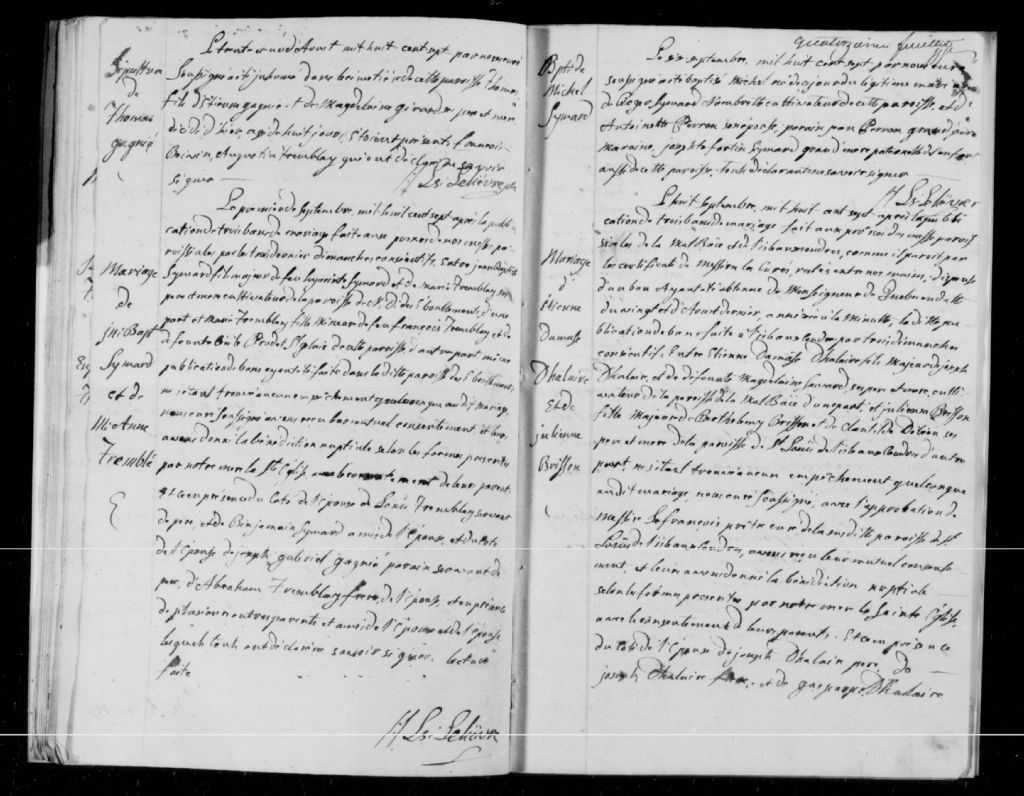 Sépulture
de
Thomas
gagnié
Le trente et un d'Aoust mil huit cent sept par nous curé
soussigné a été inhumé dans le cimetière de cette paroisse Thomas
fils d'Etienne gagnié et de Magdelaine girard ses pere et mere
décédé d'hier, agé de huit jours, Etoient présents francois
Boivin, Augustin Tremblay qui ont déclaré ne savoir
signer
Ls: Leliévre ptre
Mariage
de
Jn: Bapt:
Symard
et de
Me Anne
Tremblé
Le premier de septembre, mil huit cent sept après la publi-
cation de trois bans de mariage faite aux prones de nos messes pa-
roissiales par les trois derniers dimanches consécutifs, Entre jean Baptiste
Symard fils majeur de feu Symard et de Marie Tremblay ses
pere et mere cultivateur de la paroisse de N. D. des Eboulements, d'une
part et Marie Tremblay fille Mineure de feu francois Tremblay et de
défunte de cette paroisse d'autre part même
publication de bans ayant été faite dans la ditte paroisse des Eboulements
ne s'étant trouvé aucun empêchement quelconque au dit mariage,
nous curé soussigné avons recu leur mutuel consentement et leur
avons donné la bénédiction nuptiale selon les formes prescrites
par notre mere la Ste Eglise avec le consentement de leurs parents,
Et ce en présence du coté de l'Epoux de Louis Tremblay servant
de pere, et de Benjamin Symard ami de l'Epoux, et du coté
de l'Epouse de joseph gabriel gagnié parain servant de
pere, d'Abraham Tremblay frere de l'Epouse, et en présence
de plusieurs autres parents et amis de l'Epoux et de l'Epouse
lesquels tous ont déclaré ne savoir signer. lecture
faite
Ls: Leliévre
quatorzieme feuillet
Bpt: de
Michel
Symard
Le six septembre, mil huit cent sept par nous curé
soussigné a été baptisé Michel né de ce jour du légitime mariage
de Roger Symard cultivateur de cette paroisse, et d'
Antoinette Perron son épouse, parain Perron grand pere
Maraine, josephte fortin Symard grand mere paternelle de l'enfant
aussi de cette paroisse, tous déclarant ne savoir signer
Ls Leliévre
Mariage
d'
Etienne
Damase
Dhalaire
Et de
julienne
Brissen
Le huit septembre, mil huit cent sept après la publi-
cation de trois bans de mariage fait aux prones des messes parois-
siales de la Mal Baie et de l'isle aux coudres, comme il paroit par
les certificats de Messieurs les Curés, restés entre nos mains, dispense
d'un ban ayant été obtenue de Monseigneur de Quebec en datte
du vingt et d'Aoust dernier, annexée à la Minutte, la ditte pu-
blication de bans faite à l'isle aux coudres par trois dimanches
consécutifs, Entre Etienne Damase Dhalaire fils majeur de joseph
Dhalaire, et de défunte Magdelaine ses pere et mere, culti-
vateur de la paroisse de la Mal Baie d'une part, et julienne Brisson
fille Majeure de Barthelemy Brisson et de Clautilde ses
pere et mere de la paroisse de St. Louis de l'isle aux Coudres d'autre
part, ne s'étant trouvé aucun empêchement quelconque
au dit mariage, nous curé soussigné, avec l'approbation de
Messire Lefrancois prêtre curé de la susditte paroisse de St.
Louis de l'isle aux Coudres, avons reçu leur mutuel consente-
ment, et leur avons donné la bénédiction nuptiale
selon les formes prescrites par notre mere la Sainte Eglise
avec le consentement de leurs parents. Et ce en présence
du coté de l'Epoux de joseph Dhalaire pere, de
joseph Dhalaire frere, et de gaspard Dhalaire